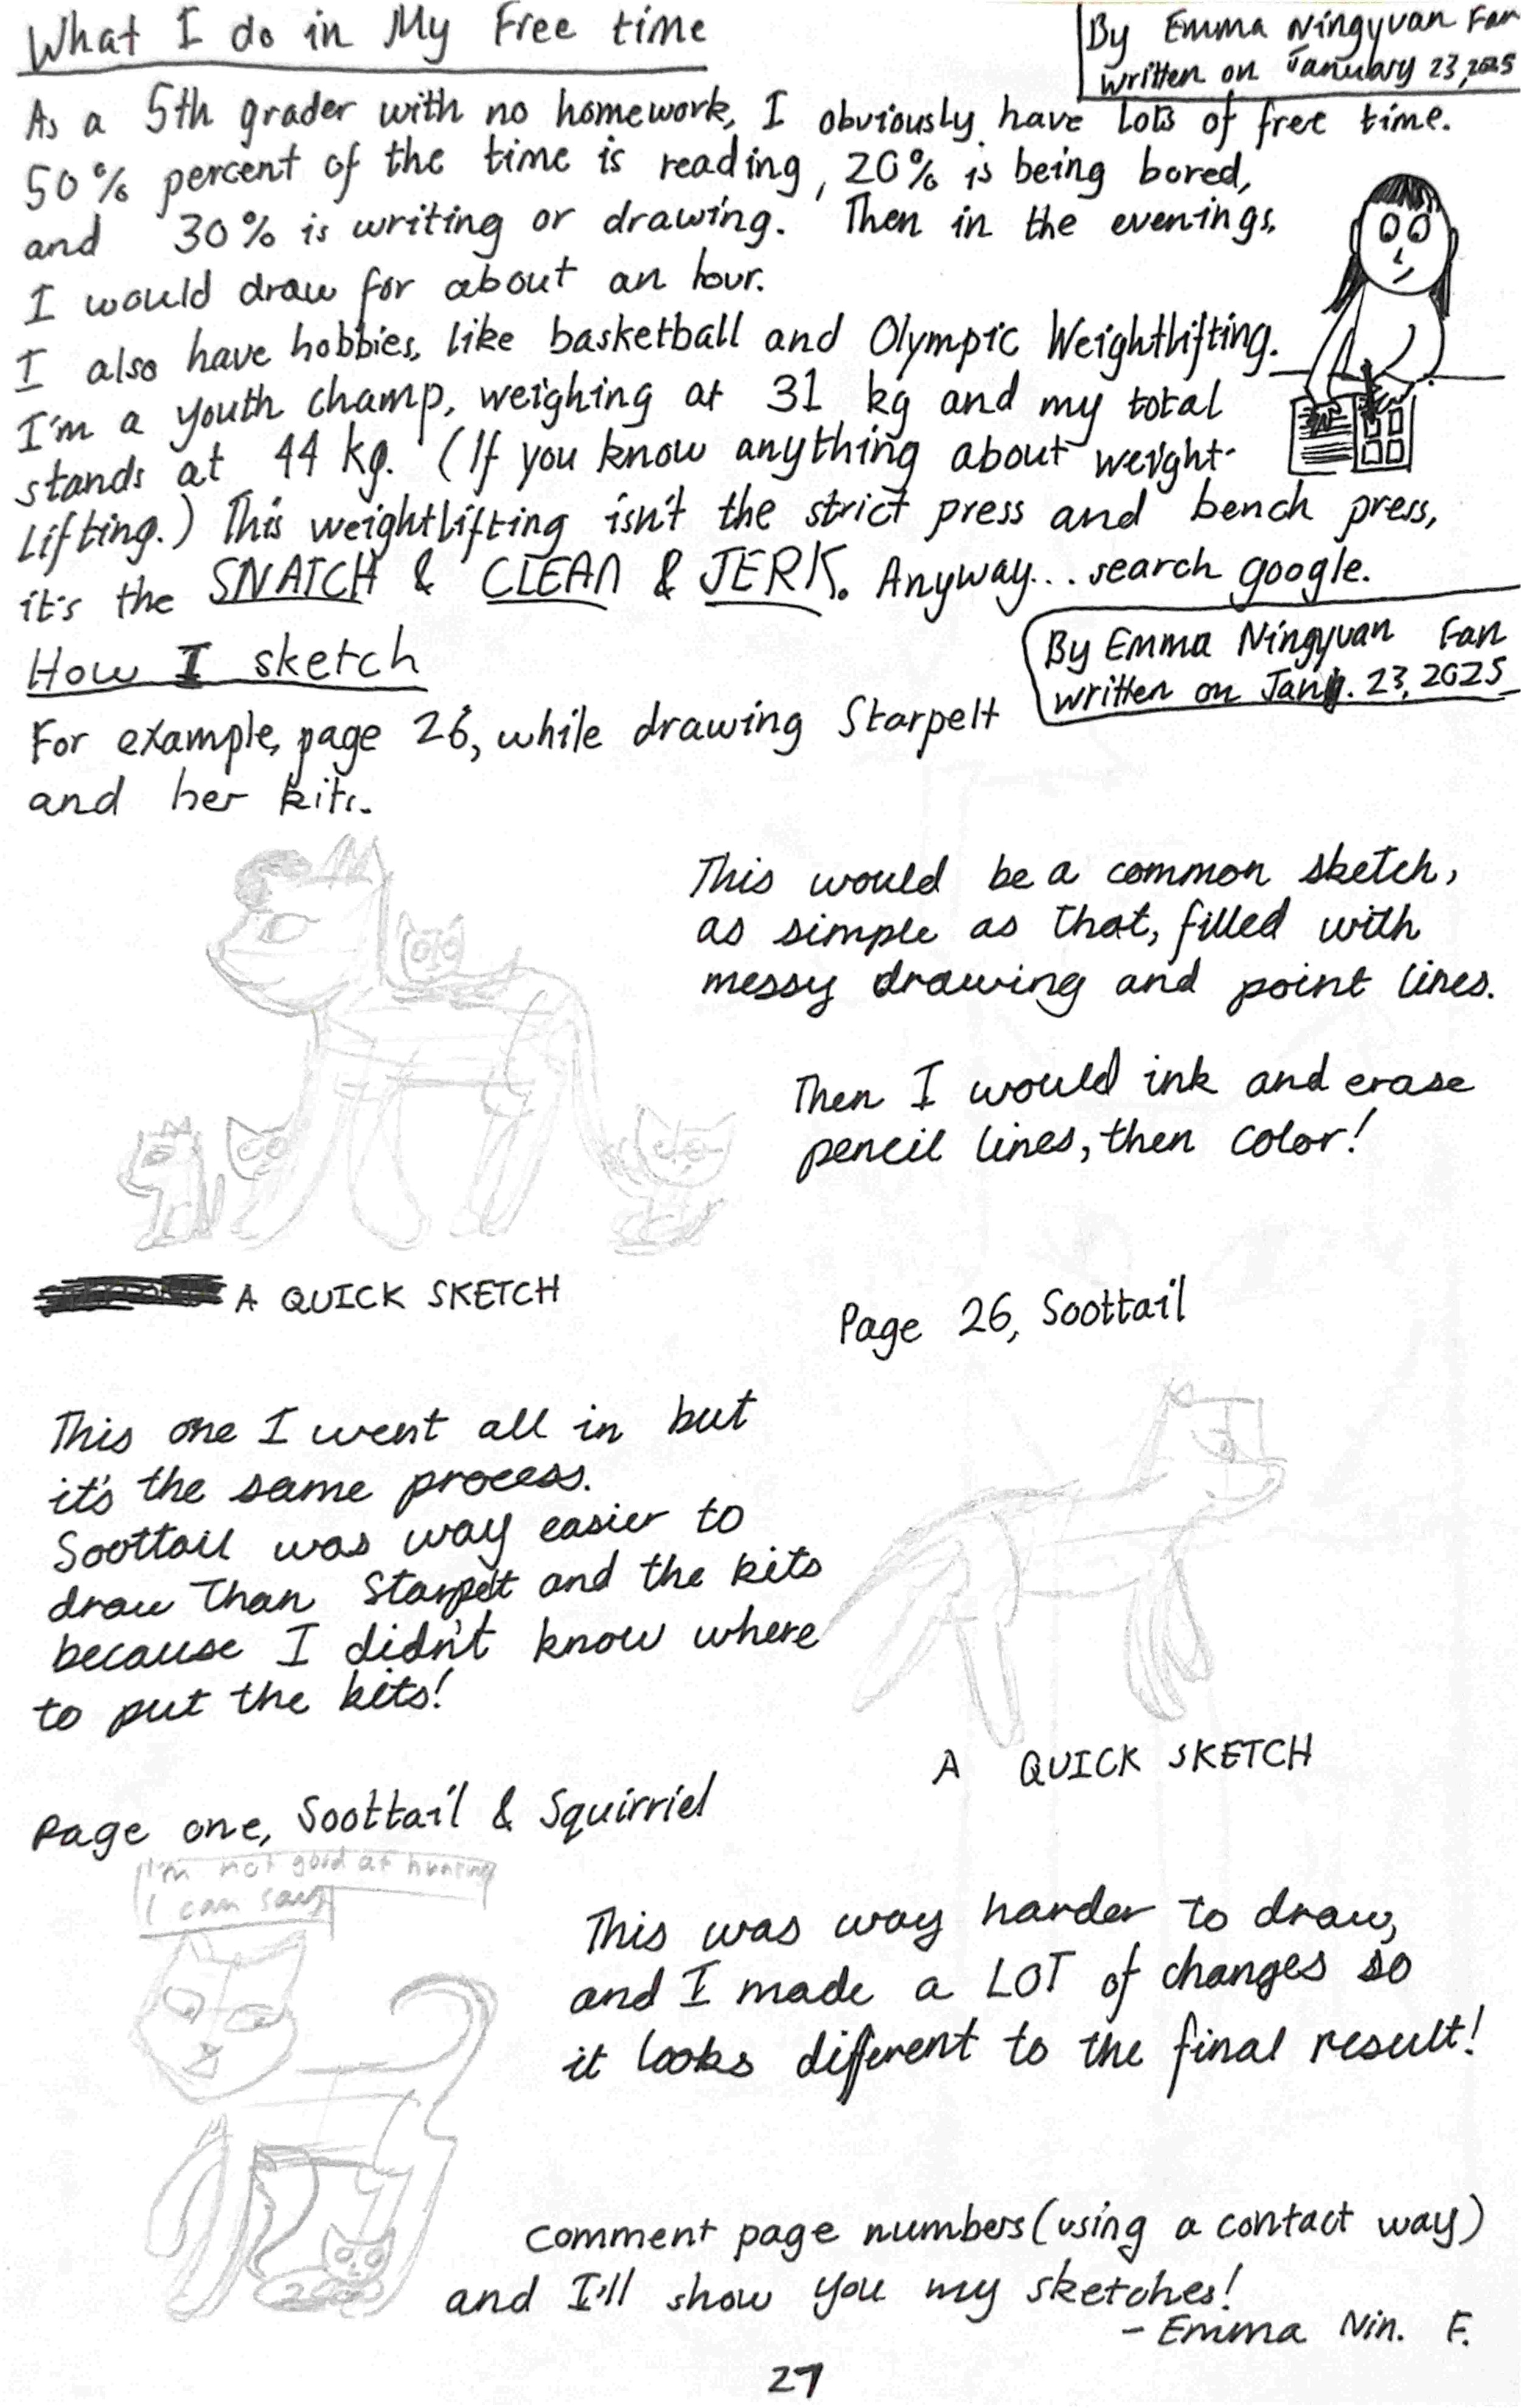 What I do in My Free time
By Emma Ningyuan Fan
written on January 23, 2025
As a 5th grader with no homework, I obviously have lots of free time.
50% percent of the time is reading, 20% is being bored,
and 30% is writing or drawing. Then in the evenings,
I would draw for about an hour.
I also have hobbies, like basketball and Olympic Weightlifting.
I'm a youth champ, weighing at 31 kg and my total
stands at 44 kg. (If you know anything about weight-
lifting.) This weightlifting isn't the strict press and bench press,
it's the SNATCH & CLEAN & JERK. Anyway... search google.
How I sketch
By Emma Ningyuan Fan
written on Jan. 23, 2025
For example, page 26, while drawing Starpelt
and her kits.
This would be a common sketch,
as simple as that, filled with
messy drawing and point lines.
Then I would ink and erase
pencil lines, then color!
A QUICK SKETCH
Page 26, Soottail
This one I went all in but
it's the same process.
Soottail was way easier to
draw than Starpelt and the kits
because I didn't know where
to put the kits!
A QUICK SKETCH
Page one, Soottail & Squirriel
I'm not good at hunting
I can say
This was way harder to draw,
and I made a LOT of changes so
it looks diferent to the final result!
comment page numbers (using a contact way)
and I'll show you my sketches!
- Emma Nin. F.
27